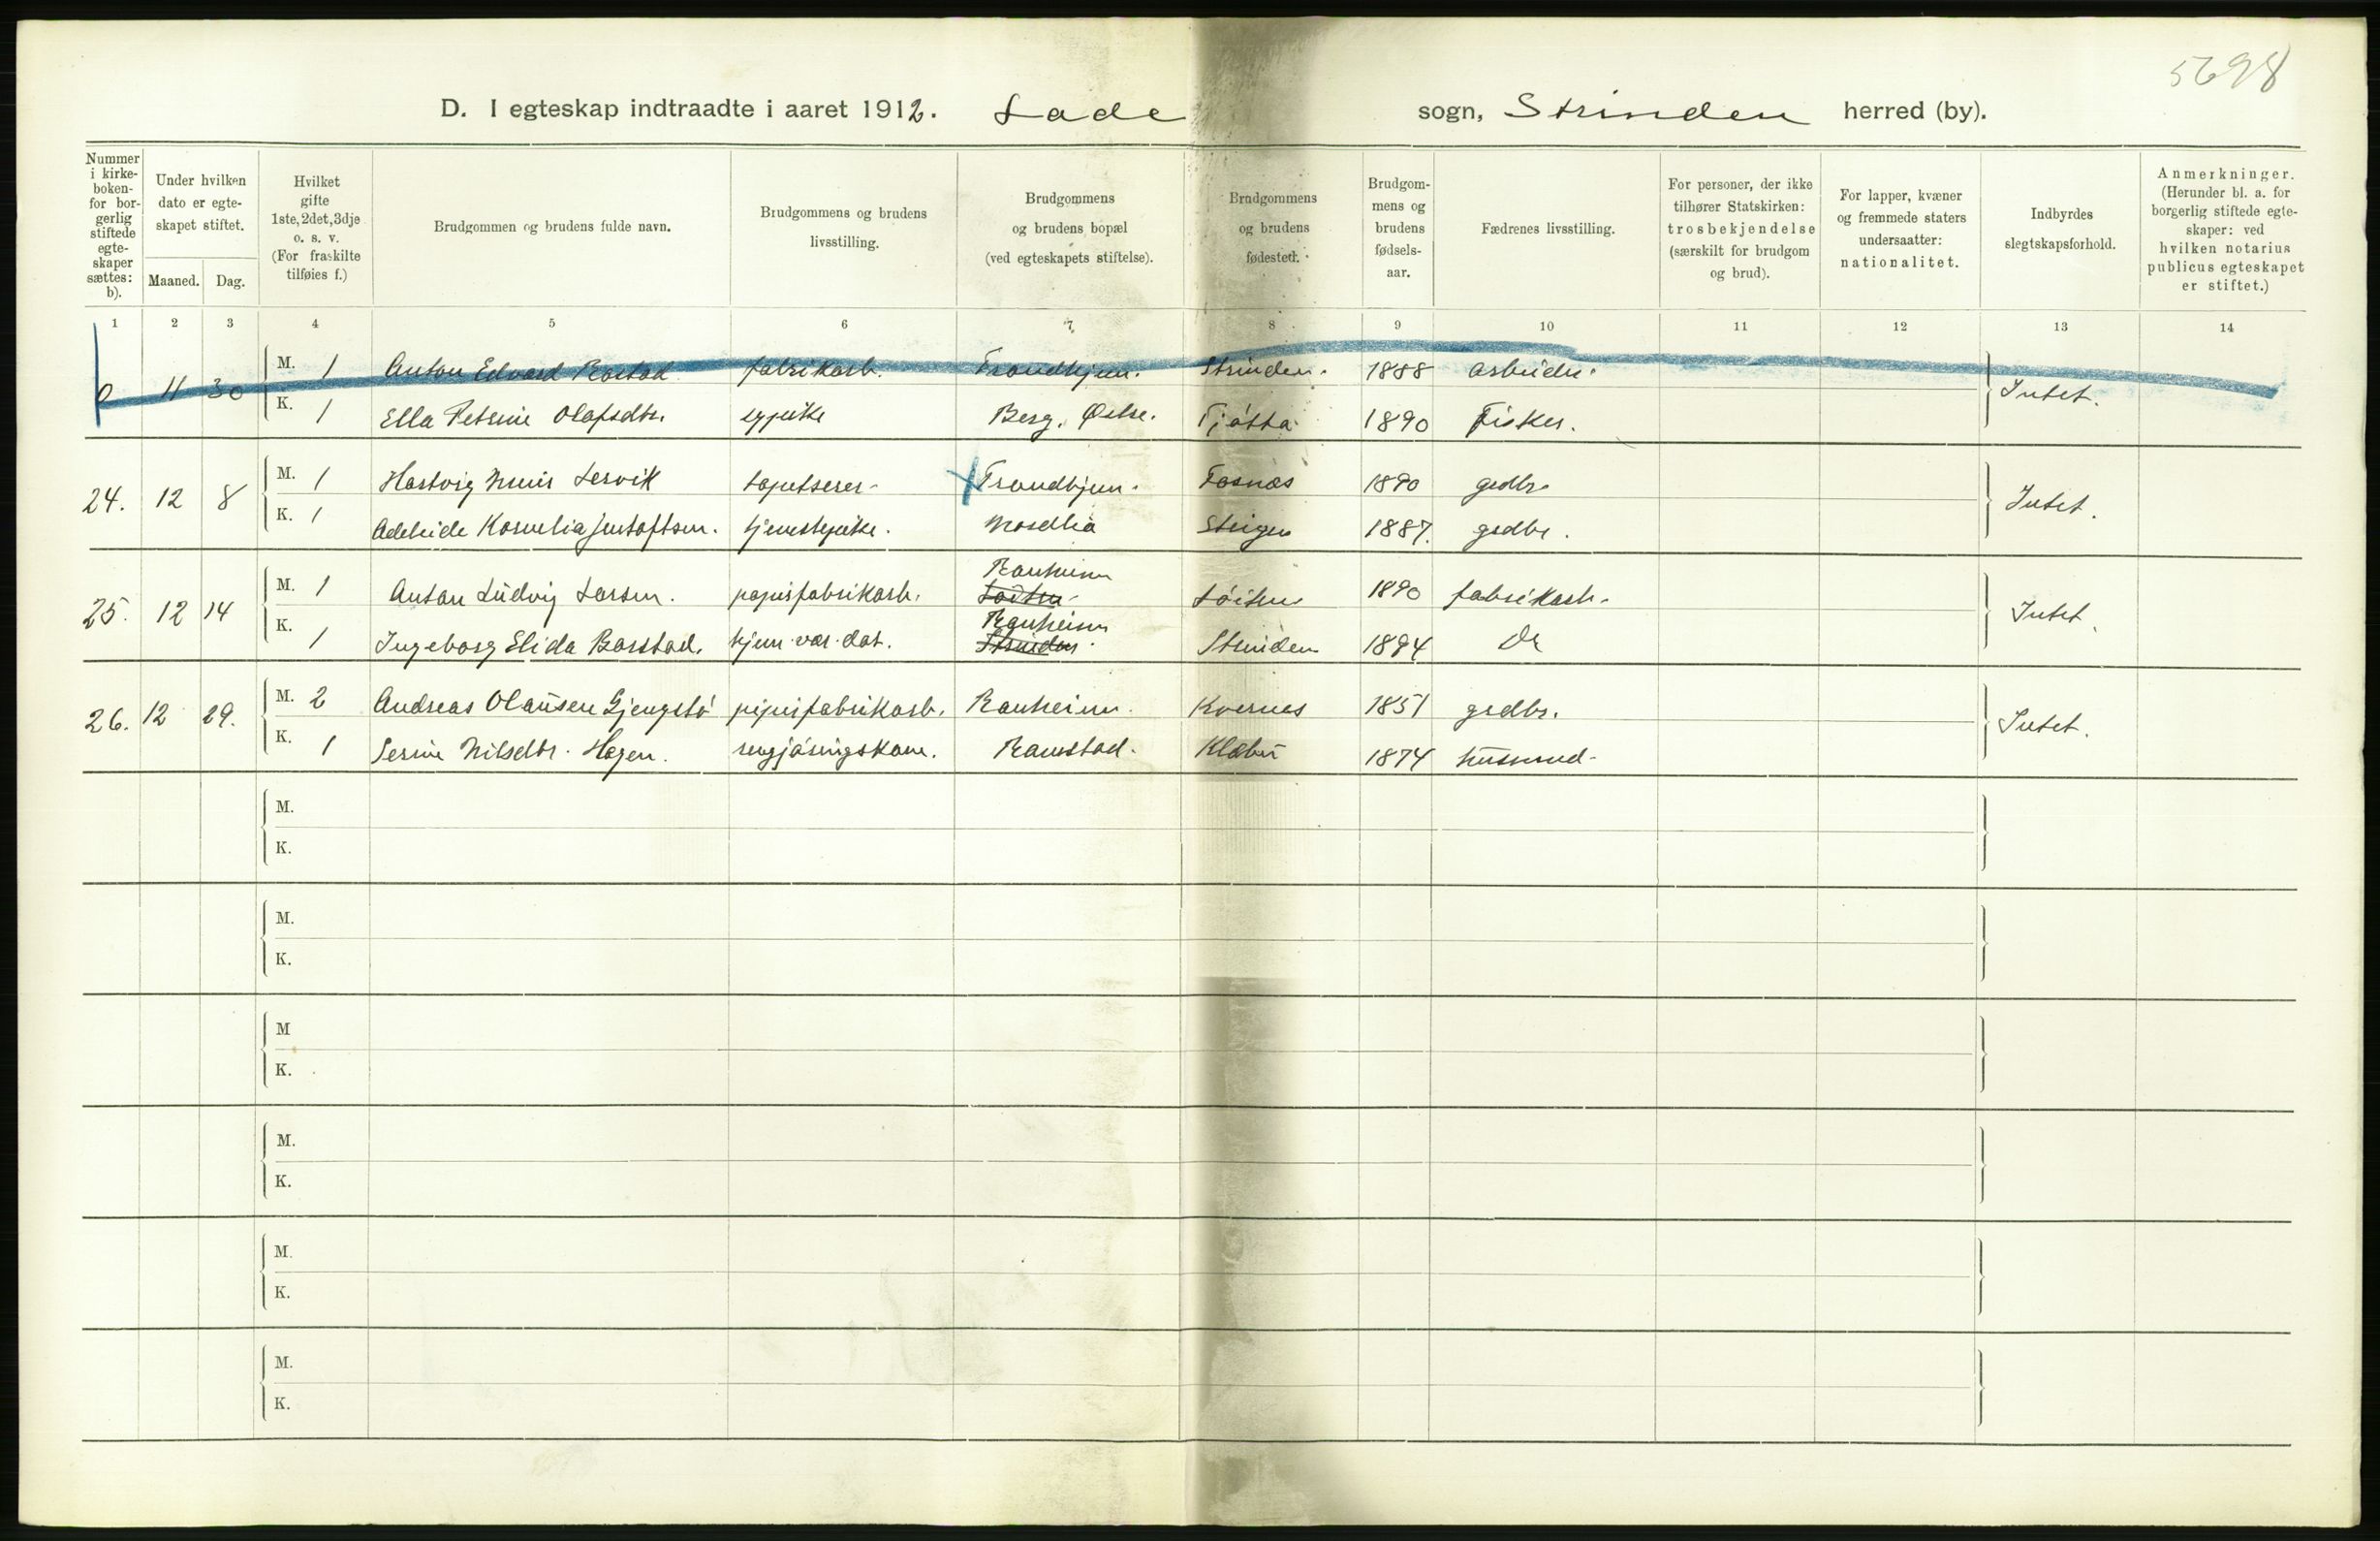 5698
D. I egteskap indtraadte i aaret 1912. Lade sogn, Strinden herred (by).
Nummer i kirke-boken- for bor-gerlig stiftede egte-skaper sættes: b).
Under hvilken dato er egte-skapet stiftet.
Maaned. Dag.
Hvilket gifte 1ste, 2det, 3dje o. s. v. (For fraskilte tilføies f.)
Brudgommen og brudens fulde navn.
Brudgommens og brudens livsstilling.
Brudgommens og brudens bopæl (ved egteskapets stiftelse).
Brudgommens og brudens fødested.
Brudgom-mens og brudens fødsels-aar.
Fædrenes livsstilling.
For personer, der ikke tilhører Statskirken: trosbekjendelse (særskilt for brudgom og brud).
For lapper, kvæner og fremmede staters undersaatter: nationalitet.
Indbyrdes slegtskapsforhold.
Anmerkninger. (Herunder bl. a. for borgerlig stiftede egte-skaper: ved hvilken notarius publicus egteskapet er stiftet.)
1 2 3 4 5 6 7 8 9 10 11 12 13 14
0 11 30 M. 1 Anton Edvard Rostad fabrikarb. Trondhjem. Strinden. 1888 arbeider. Intet.
K. 1 Ella Petrine Olafsdtr. sypike Berg, Østre. Tjøtta 1890 Fisker.
24. 12 8 M. 1 Hartvig Lervik tapetserer Trondhjem. Fosnæs 1890 grdbr. Intet.
K. 1 Adeleide Kornelia Gustafsen. tjenestepike. Steigen 1887. grdbr.
25. 12 14 M. 1 Anton Ludvig Larsen. papirfabrikarb. Ranheim Løiten 1890 fabrikarb. Intet.
K. 1 Ingeborg Elida Barstad. hjem.vær.dat. Ranheim Strinden Strinden 1894 Do
26. 12 29. M. 2 Andreas Olausen Gjengstø papirfabrikarb. Ranheim. Kvernes 1851 grdbr. Intet.
K. 1 Serine Nilsdtr. Hagen. rengjøringskone. Ramstad. Klæbu 1874 husmand.
M.
K.
M.
K.
M
K.
M.
K.
M.
K.
M.
K.